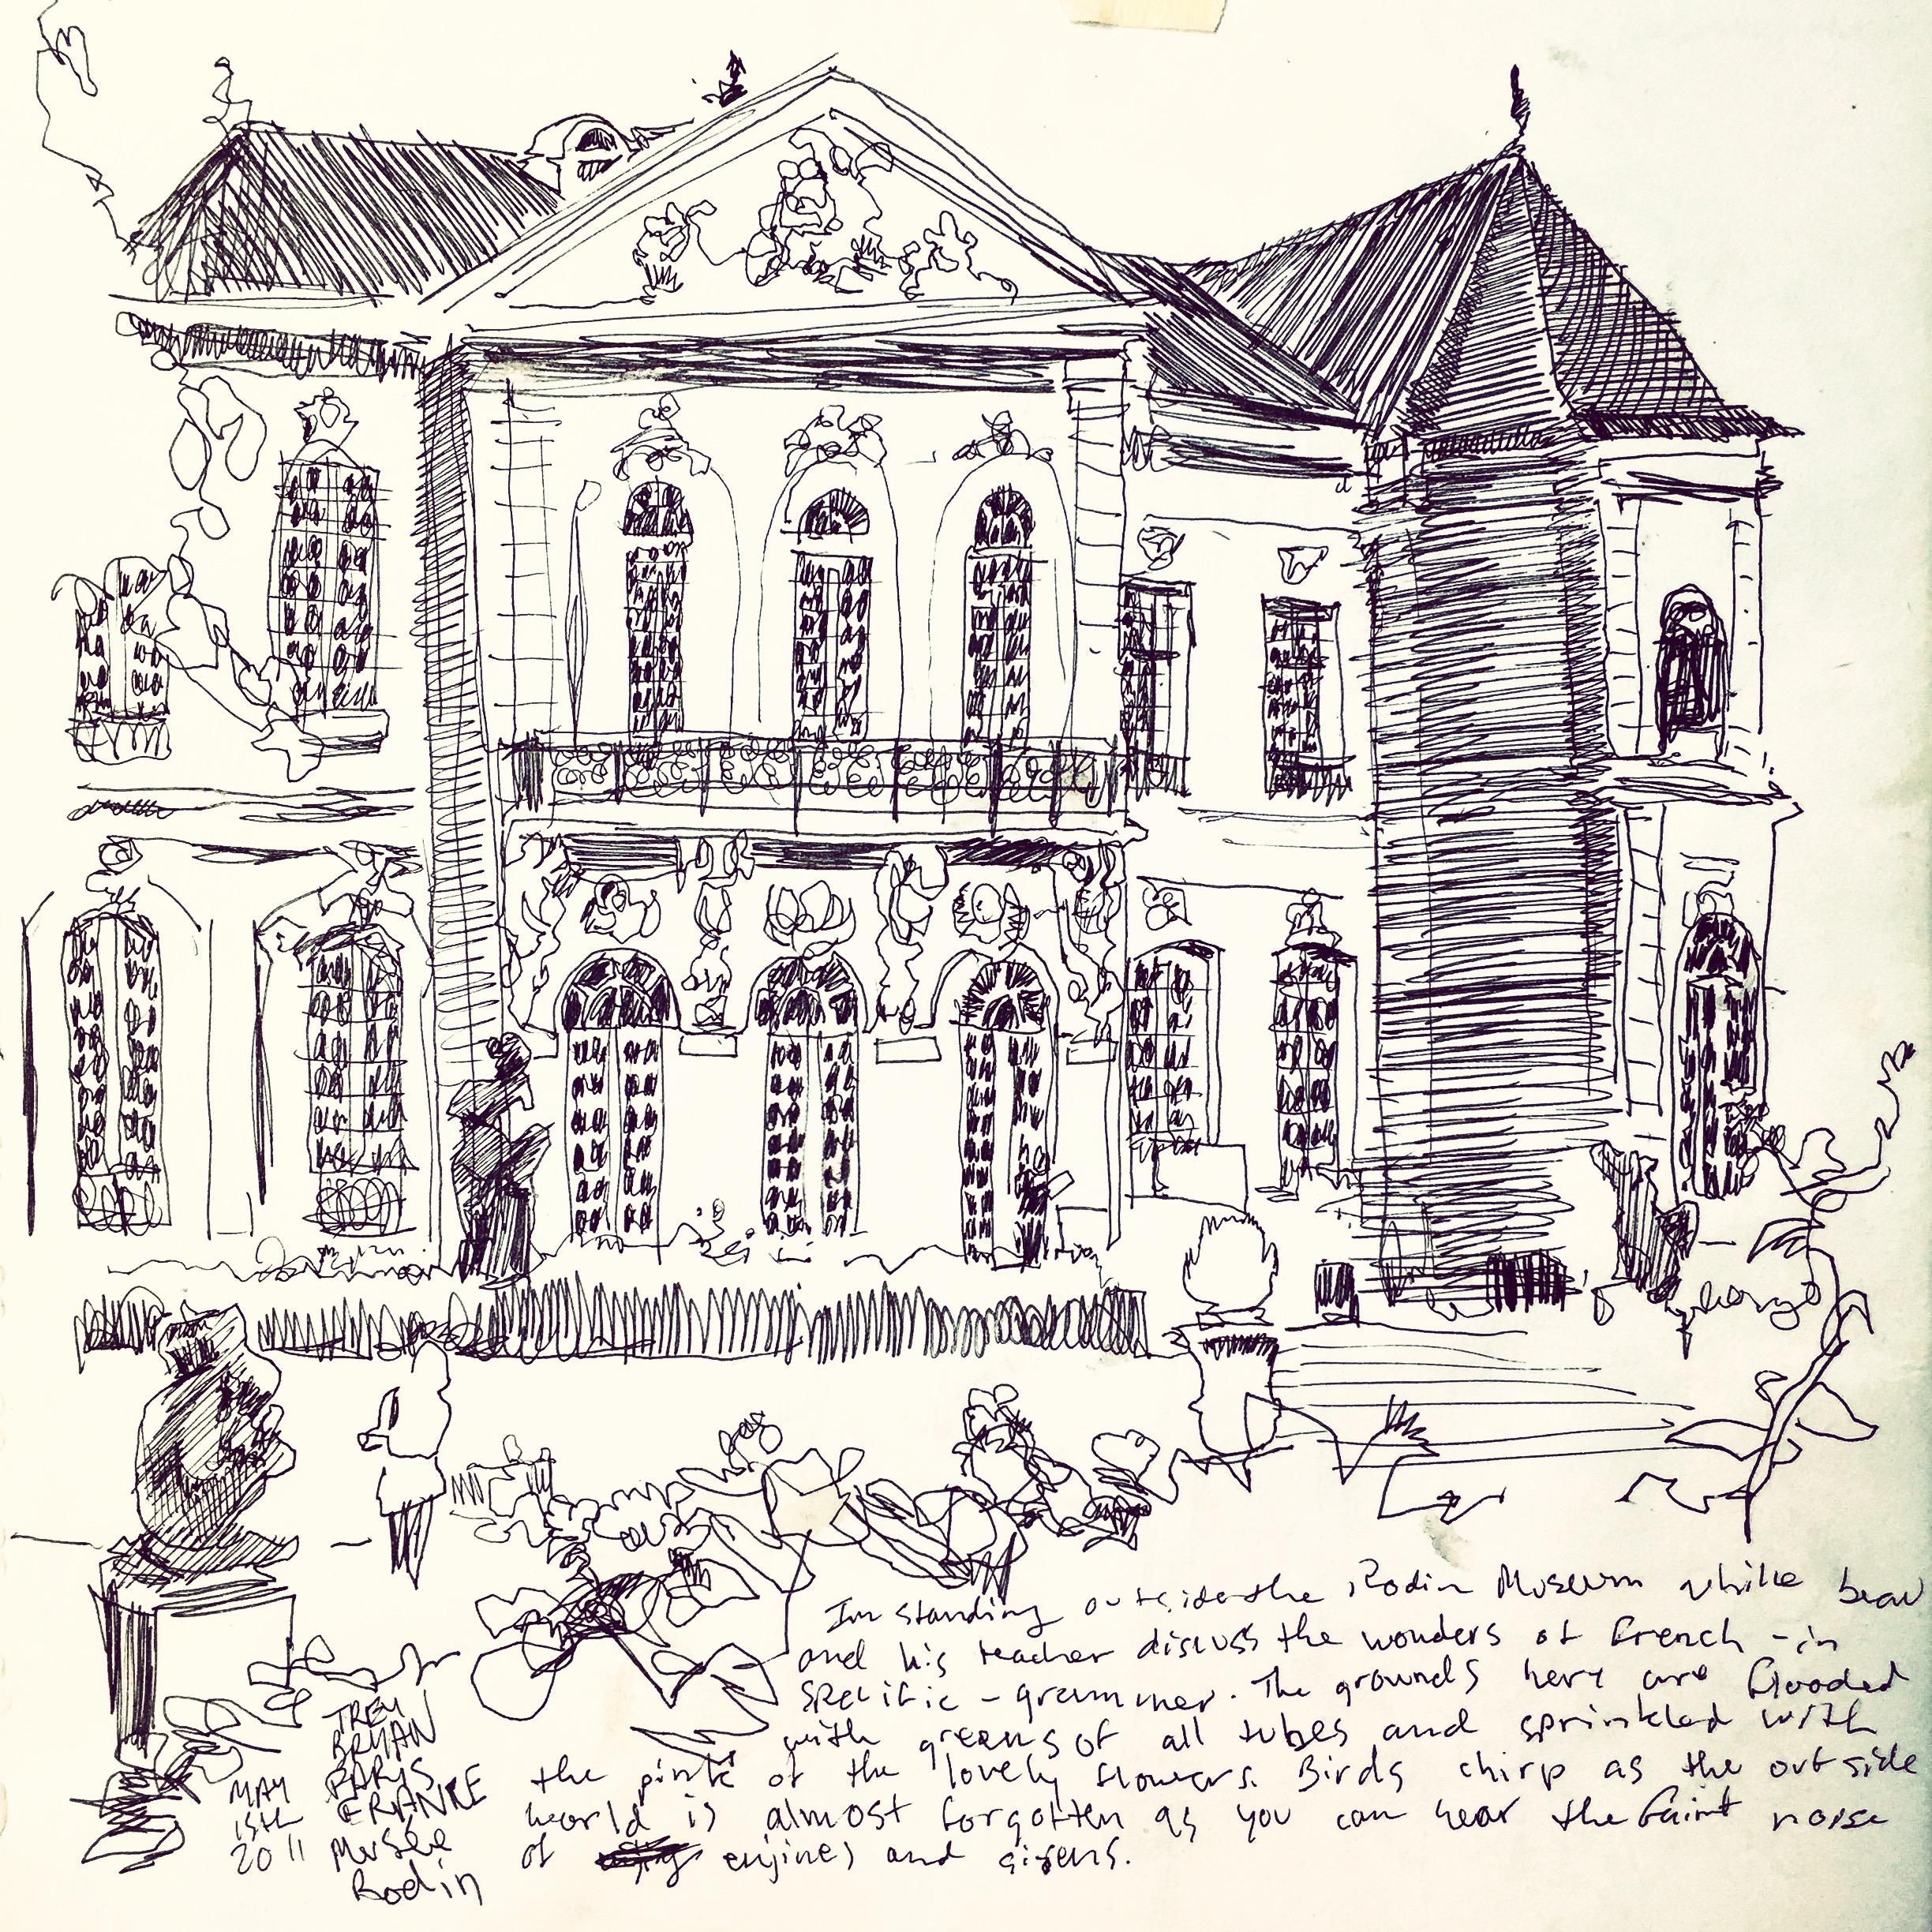 Im standing outside the Rodin Museum while beau
and his teacher discuss the wonders of French - in
specific - grammer. The grounds here are flooded
with greens of all tubes and sprinkled with
the pink of the lovely flowers. Birds chirp as the outside
world is almost forgotten as you can hear the faint noise
of engines and sirens.
TREY
BRYAN
PARIS
FRANCE
MAY
15th
2011
Musée
Rodin